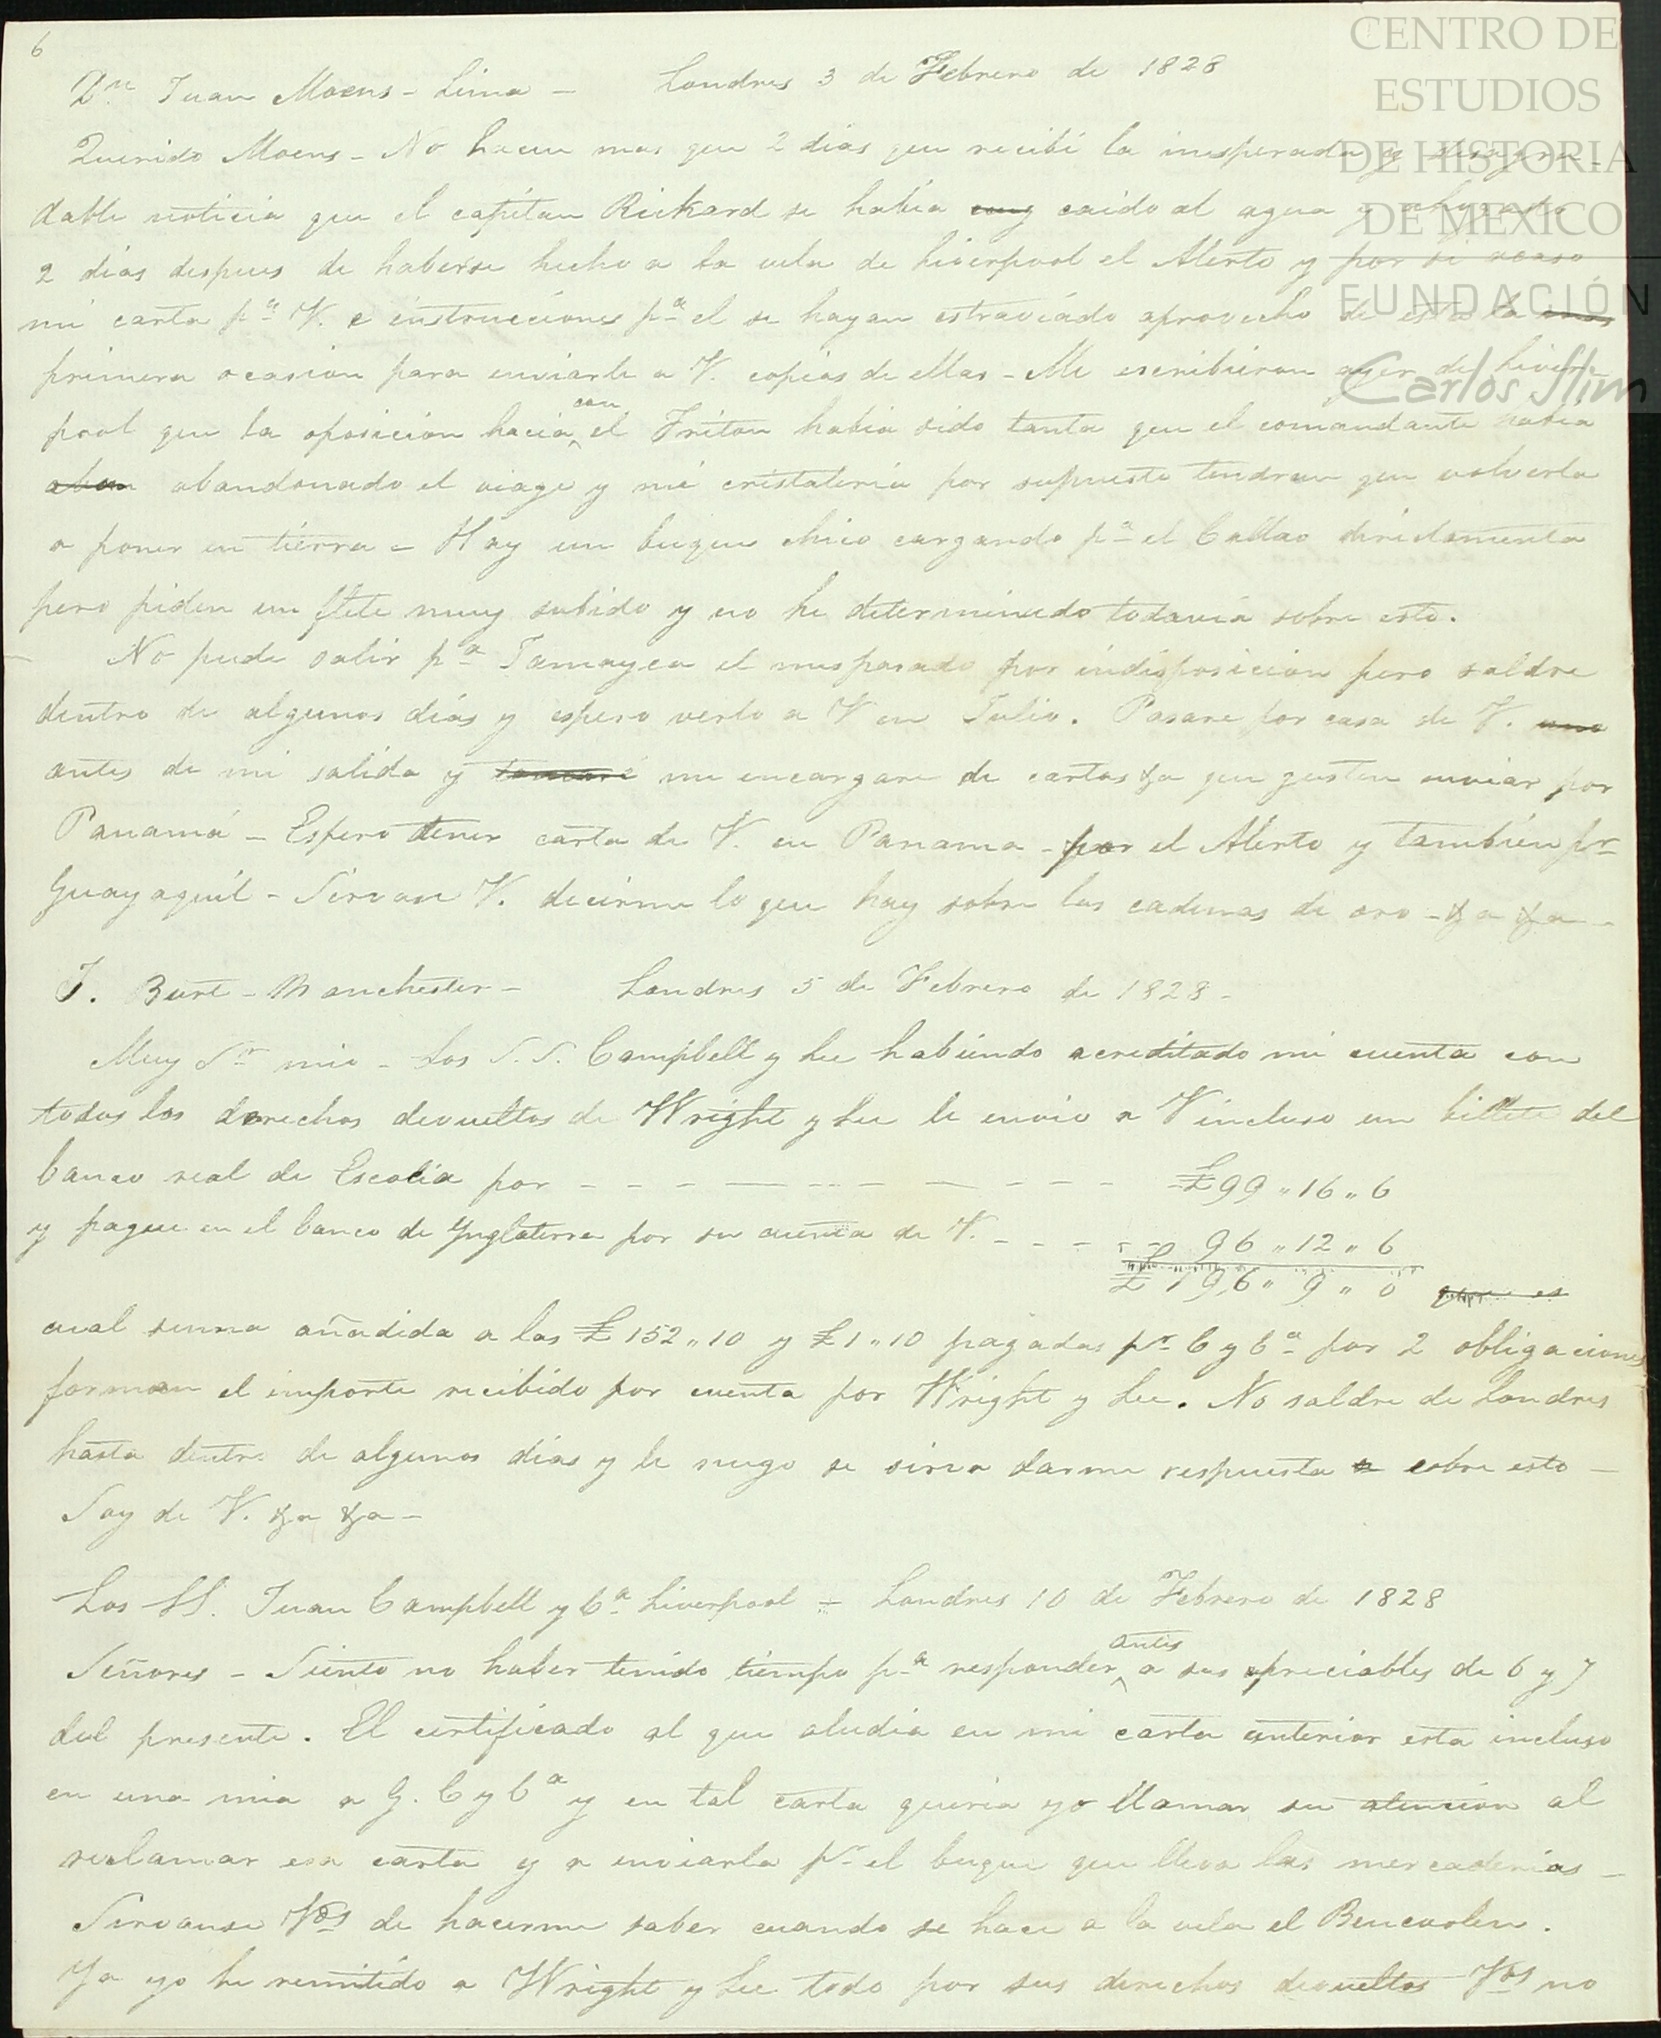 6
CENTRO DE
ESTUDIOS
DE HISTORIA
DE MEXICO
FUNDACIÓN
Carlos Slim
Dn Juan Moens - Lima - Londres 3 de Febrero de 1828
Querido Moens - No hacen mas que 2 dias que recibí la inesperada y desagra-
dable noticia que el capitan Rickard se habia caido al agua y ahogado
2 dias despues de haberse hecho a la vela de Liverpool el Alerto y por si acaso
mi carta pa V. e instrucciones pa el se hayan estraviado aprovecho de esta la
primera ocasion para enviarle a V. copias de ellas - Me escribieron ayer de Liver-
pool que la oposicion hacia con el Triton habia sido tanta que el comandante habia
abandonado el viage y mi cristaleria por supuesto tendran que volverla
a poner en tierra - Hay un buque chico cargando pa el Callao directamente
pero piden un flete muy subido y no he determinado todavia sobre esto.
No pude salir pa Jamayca el mes pasado por indisposicion pero saldre
dentro de algunos dias y espero verlo a V en Julio. Pasare por casa de V.
antes de mi salida y me encargare de cartas &a que gusten enviar por
Panamá - Espero tener carta de V. en Panama - por el Alerto y tambien pr
Guayaquil - Sirvase V. decirme lo que hay sobre las cadenas de oro - &a &a -
J. Burt - Manchester - Londres 5 de Febrero de 1828 -
Muy Sr mio - Los S.S. Campbell y Lee habiendo acreditado mi cuenta con
todos los derechos devueltos de Wright y Lee le envio a V incluso un billete del
banco real de Escocia por - - - £99 " 16 " 6
y pague en el banco de Ynglaterra por su cuenta de V. - - - 96 " 12 " 6
£ 196 " 9 " 0 que es
cual suma añadida a las £152 " 10 y £1 " 10 pagadas pr C y Ca por 2 obligaciones
forman el importe recibido por cuenta por Wright y Lee. No saldre de Londres
hasta dentro de algunos dias y le ruego se sirva darme respuesta sobre esto -
Soy de V. &a &a -
Los SS. Juan Campbell y Ca Liverpool - Londres 10 de Febrero de 1828
Señores - Siento no haber tenido tiempo pa responder antes a sus apreciables de 6 y 7
del presente. El certificado al que aludia en mi carta anterior esta incluso
en una mia a G. C y Ca y en tal carta queria yo llamar su atencion al
reclamar esa carta y a enviarla pr el buque que lleva las mercaderias -
Sirvanse Vds de hacerme saber cuando se hace a la vela el Bencoolen.
Ya yo he remitido a Wright y Lee todo por sus derechos devueltos Vds no